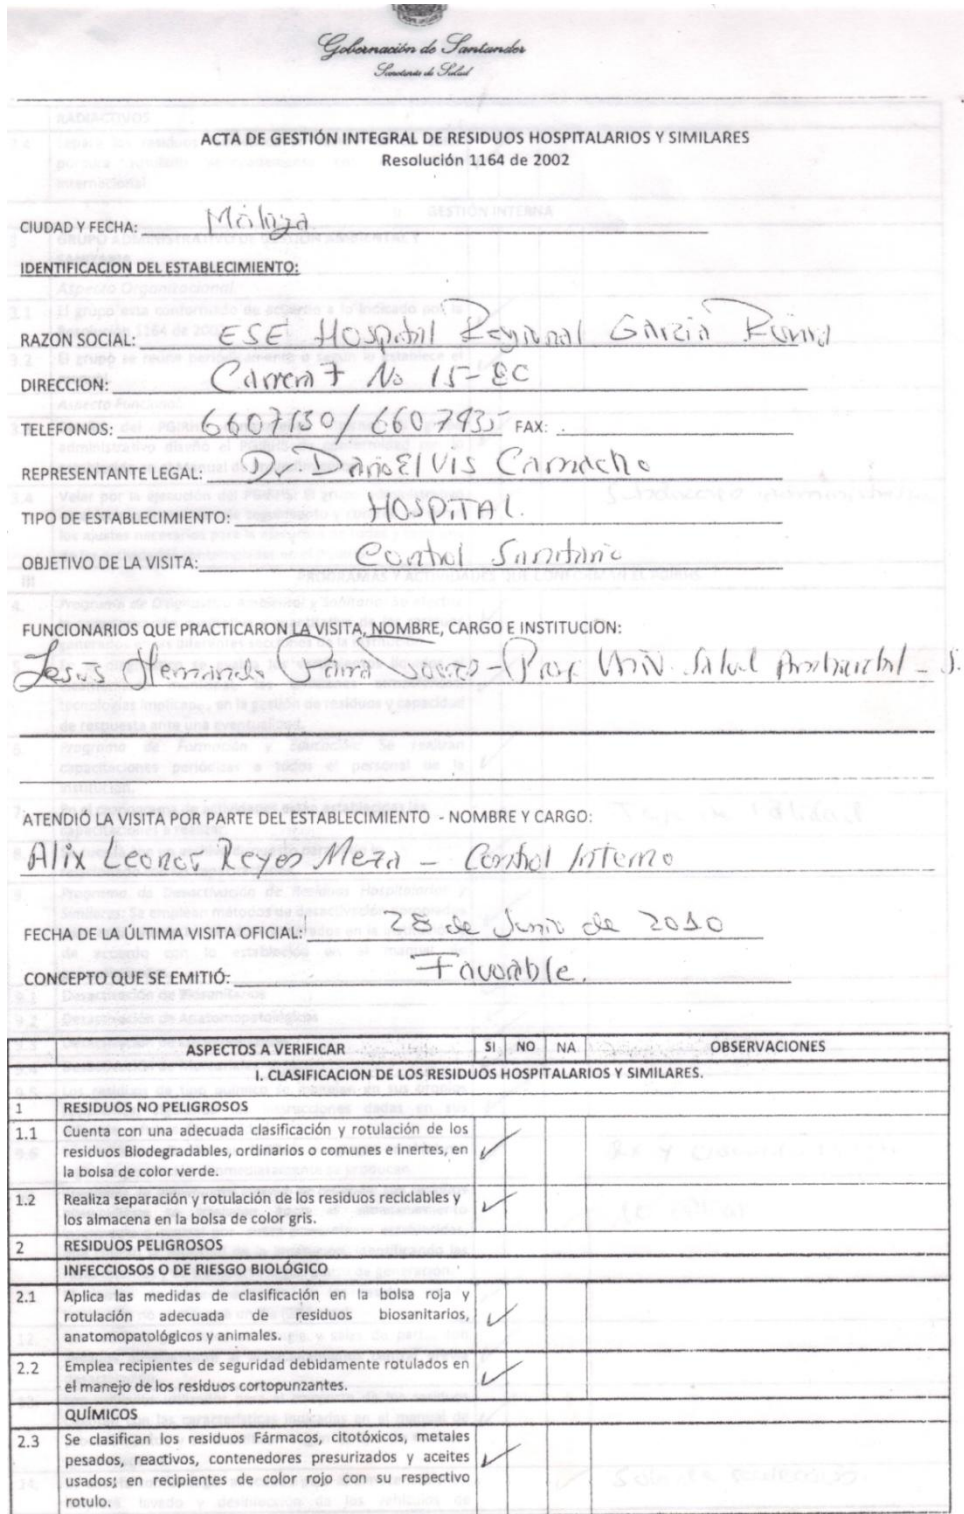 Gobernación de Santander
Secretaría de Salud
ACTA DE GESTIÓN INTEGRAL DE RESIDUOS HOSPITALARIOS Y SIMILARES
Resolución 1164 de 2002
CIUDAD Y FECHA: Málaga
IDENTIFICACION DEL ESTABLECIMIENTO:
RAZON SOCIAL: ESE Hospital Regional García Rovira
DIRECCION: Carrera 7 No 15-
TELEFONOS: FAX: .
REPRESENTANTE LEGAL: Camacho
TIPO DE ESTABLECIMIENTO: HOSPITAL.
OBJETIVO DE LA VISITA: Control Sanitario
FUNCIONARIOS QUE PRACTICARON LA VISITA, NOMBRE, CARGO E INSTITUCION:
Jesús Hernando Parra - Prof Univ. Salud Ambiental - S.
ATENDIÓ LA VISITA POR PARTE DEL ESTABLECIMIENTO - NOMBRE Y CARGO:
Alix Leonor Reyes Meza - Control Interno
FECHA DE LA ÚLTIMA VISITA OFICIAL: 28 de Junio de 2010
CONCEPTO QUE SE EMITIÓ: Favorable.
ASPECTOS A VERIFICAR SI NO NA OBSERVACIONES
I. CLASIFICACION DE LOS RESIDUOS HOSPITALARIOS Y SIMILARES.
1 RESIDUOS NO PELIGROSOS
1.1 Cuenta con una adecuada clasificación y rotulación de los
residuos Biodegradables, ordinarios o comunes e inertes, en
la bolsa de color verde.
1.2 Realiza separación y rotulación de los residuos reciclables y
los almacena en la bolsa de color gris.
2 RESIDUOS PELIGROSOS
INFECCIOSOS O DE RIESGO BIOLÓGICO
2.1 Aplica las medidas de clasificación en la bolsa roja y
rotulación adecuada de residuos biosanitarios,
anatomopatológicos y animales.
2.2 Emplea recipientes de seguridad debidamente rotulados en
el manejo de los residuos cortopunzantes.
QUÍMICOS
2.3 Se clasifican los residuos Fármacos, citotóxicos, metales
pesados, reactivos, contenedores presurizados y aceites
usados; en recipientes de color rojo con su respectivo
rotulo.